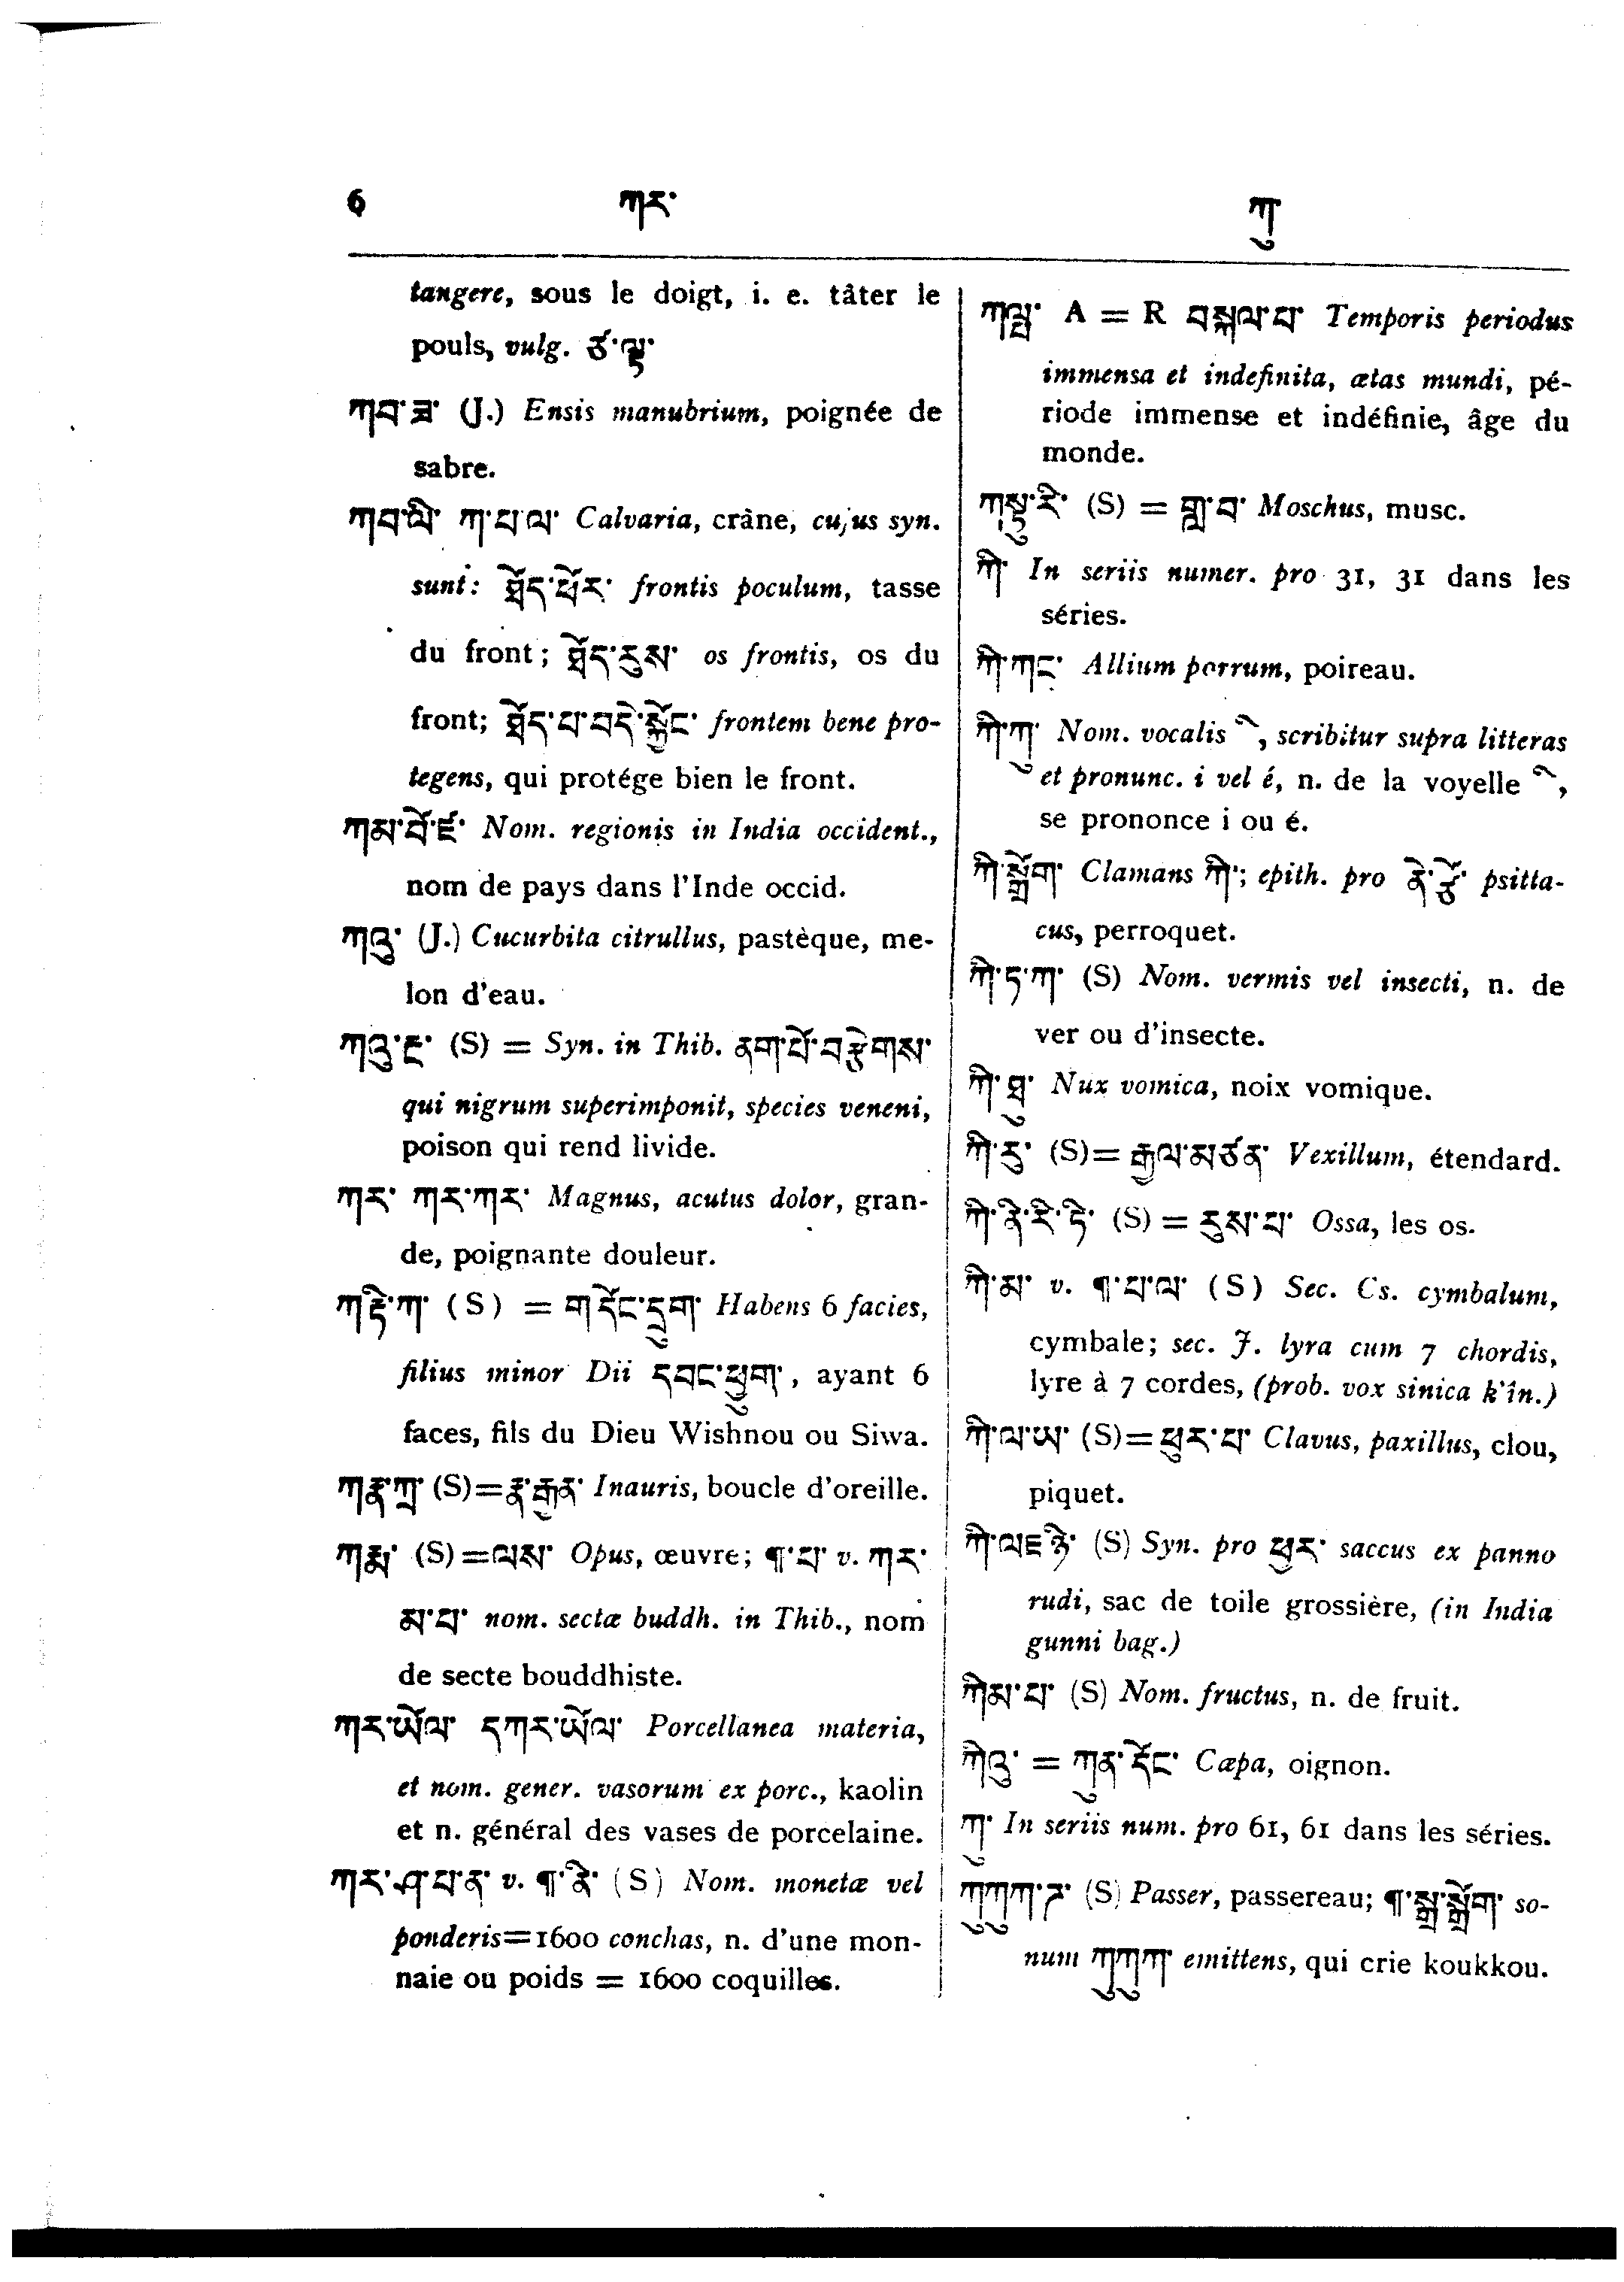 6 ཀར་ ཀུ
tangere, sous le doigt, i. e. tâter le
pouls, vulg. ཙ་ལྟ་
ཀབ་ཟ་ (J.) Ensis manubrium, poignée de
sabre.
ཀབ་ལི་ ཀ་པ་ལ་ Calvaria, crâne, cujus syn.
sunt: ཐོད་ཕོར་ frontis poculum, tasse
du front; ཐོད་རུས་ os frontis, os du
front; ཐོད་པ་བདེ་སྐྱོང་ frontem bene pro-
tegens, qui protége bien le front.
ཀམ་བོ་ཛ་ Nom. regionis in India occident.,
nom de pays dans l'Inde occid.
ཀབུ་ (J.) Cucurbita citrullus, pastèque, me-
lon d'eau.
(S) = Syn. in Thib. ནག་པོ་བརྩེགས་
qui nigrum superimponit, species veneni,
poison qui rend livide.
ཀར་ ཀར་ཀར་ Magnus, acutus dolor, gran-
de, poignante douleur.
ཀརྟི་ཀ་ (S) = གདོང་དྲུག་ Habens 6 facies,
filius minor Dii དབང་ཕྱུག་, ayant 6
faces, fils du Dieu Wishnou ou Siwa.
(S)=རྣ་རྒྱན་ Inauris, boucle d'oreille.
ཀརྨ་ (S)=ལས་ Opus, œuvre; ¶་པ་ v. ཀར་
མ་པ་ nom. sectæ buddh. in Thib., nom
de secte bouddhiste.
ཀར་ཡོལ་ དཀར་ཡོལ་ Porcellanea materia,
et nom. gener. vasorum ex porc., kaolin
et n. général des vases de porcelaine.
ཀར་ཤ་པ་ན་ v. ¶་ནི་ (S) Nom. monetæ vel
ponderis=1600 conchas, n. d'une mon-
naie ou poids = 1600 coquilles.
ཀལྤ་ A = R བསྐལ་པ་ Temporis periodus
immensa et indefinita, ætas mundi, pé-
riode immense et indéfinie, âge du
monde.
ཀསྟུ་རི་ (S) = གླ་བ་ Moschus, musc.
ཀི་ In seriis numer. pro 31, 31 dans les
séries.
ཀི་ཀང་ Allium porrum, poireau.
ཀི་ཀུ་ Nom. vocalis ི, scribitur supra litteras
et pronunc. i vel é, n. de la voyelle ི,
se prononce i ou é.
ཀི་སྒྲོག་ Clamans ཀི་; epith. pro ནེ་ཙོ་ psitta-
cus, perroquet.
ཀི་ཏ་ཀ་ (S) Nom. vermis vel insecti, n. de
ver ou d'insecte.
ཀི་ཐུ་ Nux vomica, noix vomique.
ཀི་རུ་ (S)= རྒྱལ་མཚན་ Vexillum, étendard.
ཀི་ནི་རི་ཏི་ (S) = རུས་པ་ Ossa, les os.
ཀི་མ་ v. ¶་པ་ལ་ (S) Sec. Cs. cymbalum,
cymbale; sec. J. lyra cum 7 chordis,
lyre à 7 cordes, (prob. vox sinica k'în.)
ཀི་ལ་ཡ་ (S)=ཕུར་པ་ Clavus, paxillus, clou,
piquet.
(S) Syn. pro ཕྱར་ saccus ex panno
rudi, sac de toile grossière, (in India
gunni bag.)
ཀིམ་པ་ (S) Nom. fructus, n. de fruit.
ཀིབུ་ = ཀུན་དོང་ Cæpa, oignon.
ཀུ་ In seriis num. pro 61, 61 dans les séries.
(S) Passer, passereau; ¶་སྒྲ་སྒྲོག་ so-
num ཀུཀུཀ་ emittens, qui crie koukkou.